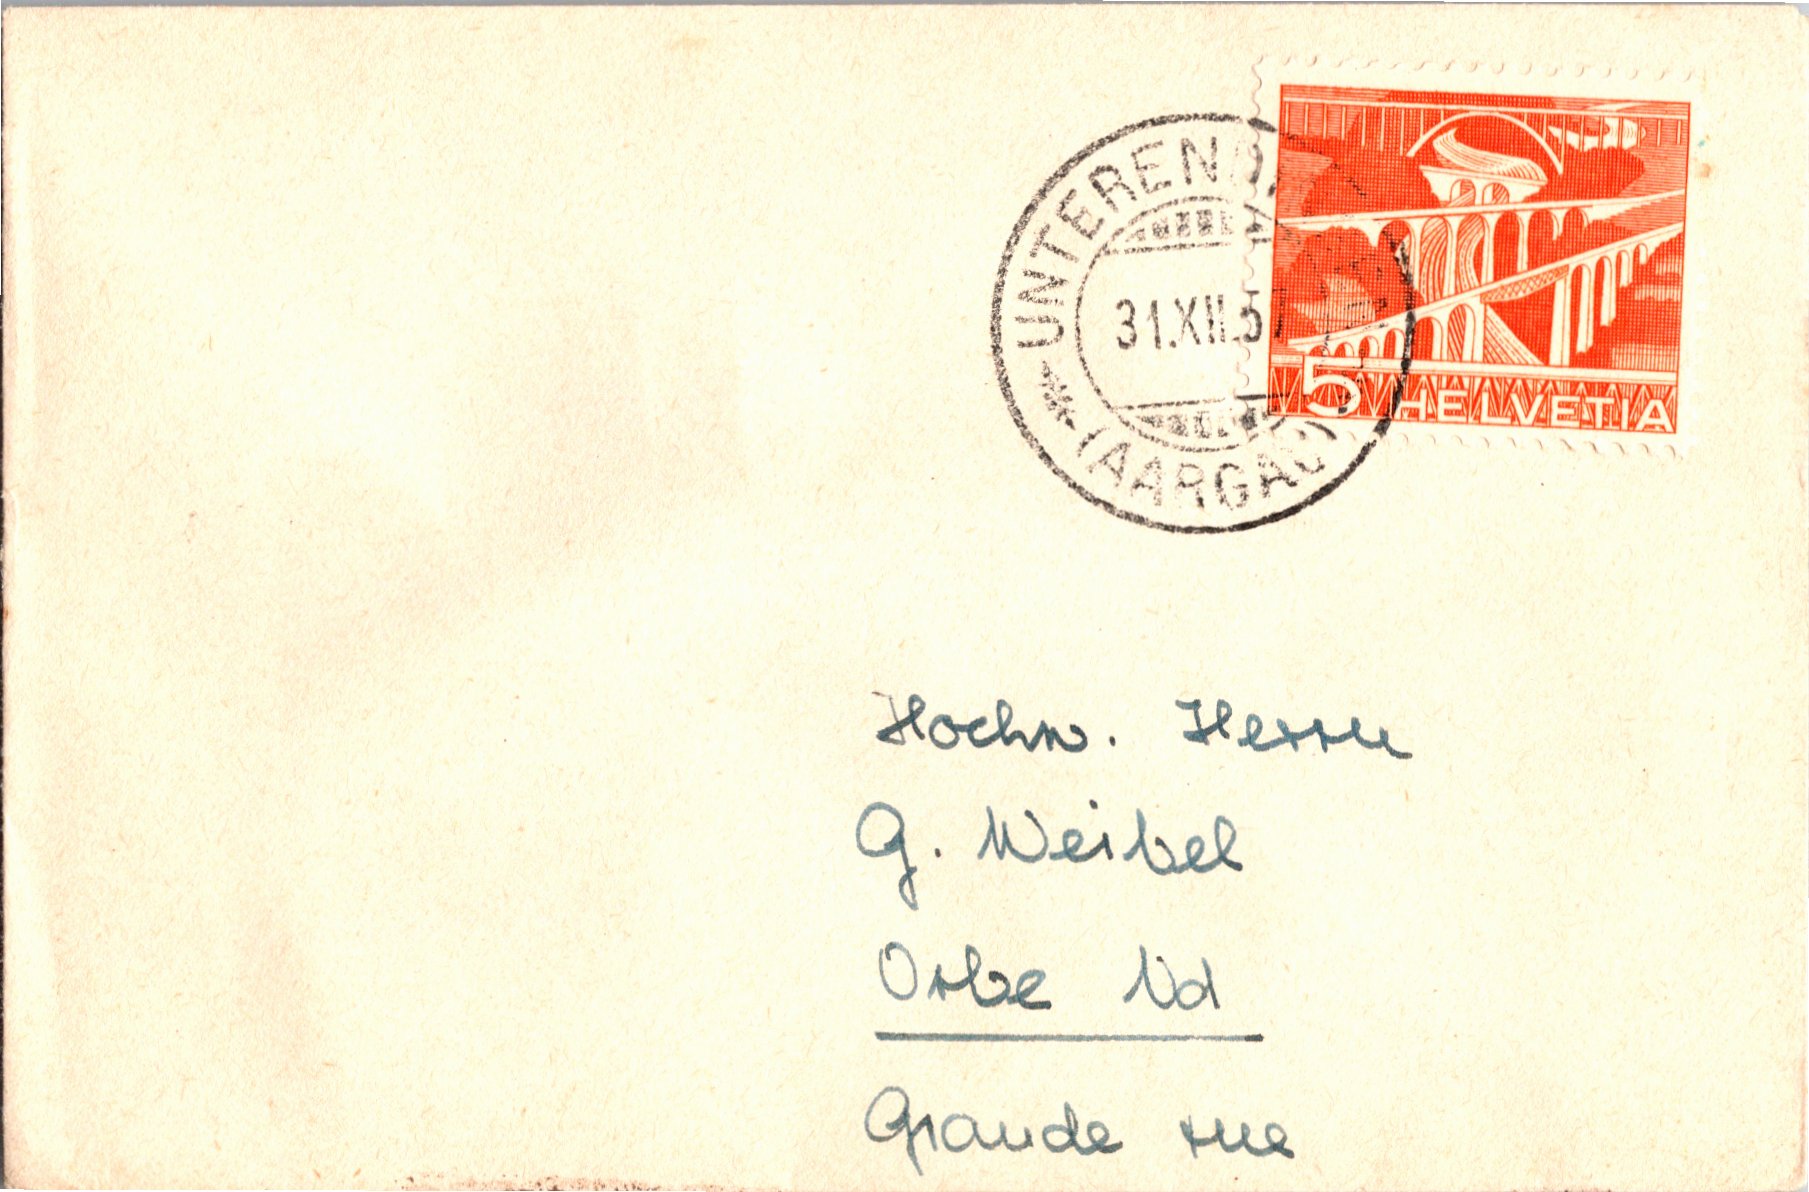 UNTERENDINGEN
31.XII.51
(AARGAU)
5 HELVETIA
Hochw. Herrn
G. Weibel
Orbe Vd
Grande rue